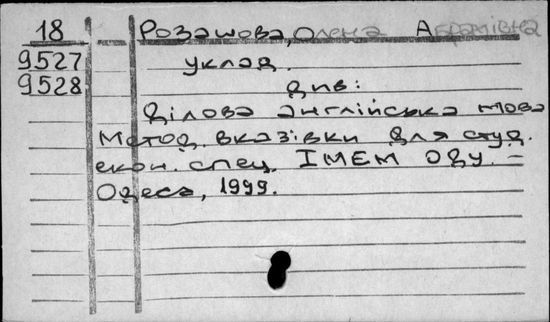 18 Розашова, Олена Абрамівна
9527 уклад.
9528 див:
Ділова англійська мова
Метод. вказівки для студ.
екон. спец. ІМЕМ ОДУ. –
Одеса, 1999.